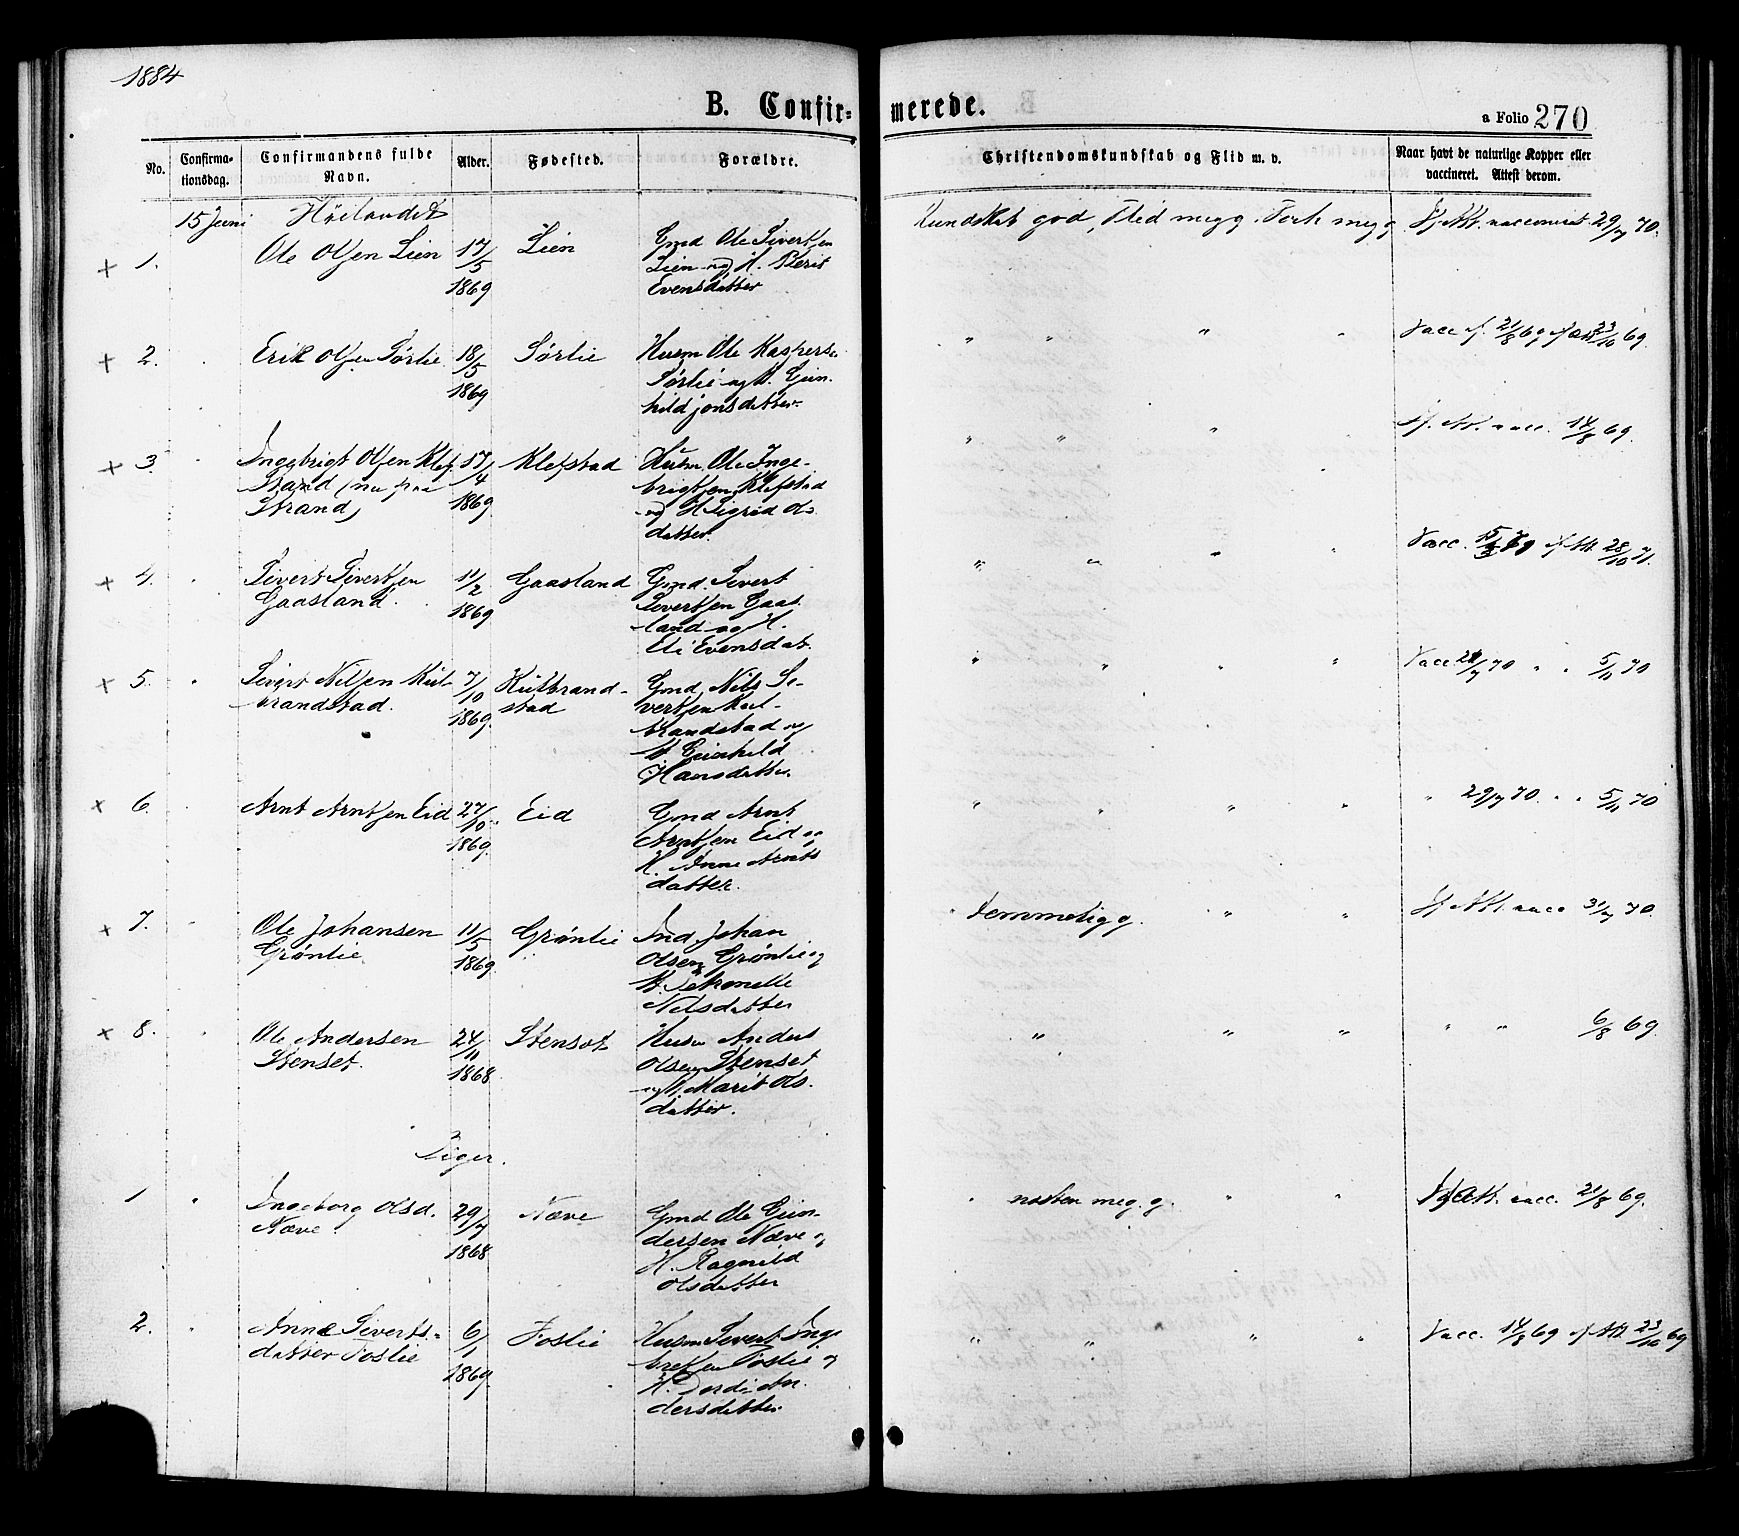 1884
B. Confir=
merede.
a Folio 270
No.
Confirma-
tionsdag.
Confirmandens fulde
Navn.
Alder.
Fødested.
Forældre.
Christendomskundskab og Flid m. v.
Naar havt de naturlige Kopper eller
vaccineret. Attest derom.
15 Juni
Høilandet
+ 1.
Ole Olsen Lien
17/5
1869
Lien
Gmd Ole Sivertsen
Lien og H. Berit
Evensdatter
Kundskab god, Flid meg g. Forh meg g
If. Att. vaccineret 29/7 70.
+ 2.
Erik Olsen Sørlie
18/5
1869
Sørlie
Husm Ole Kaspers.
Sørlie og H. Gun-
hild Jonsdatter.
" " " "
Vacc. d. 21/8 69 if att 23/10 69.
+ 3.
"
Ingebrigt Olsen Klef-
stad (nu paa
Strand)
17/4
1869
Klefstad
Husm. Ole Inge-
brigtsen Klefstad
og H Sigrid Ols-
datter.
" " " "
If. Att. vacc. 14/8 69.
+ 4.
"
Sivert Sivertsen
Gaasland.
11/2
1869
Gaasland
Gmd. Sivert
Sivertsen Gaas-
land og H.
Eli Evensdat.
" " " "
Vacc. 15/ if Att. 28/10 71.
+ 5.
"
Sivert Nilsen Kul-
brandstad.
7/10
1869.
Kulbrand-
stad
Gmd. Nils Si-
vertsen Kul-
brandstad og
H Gunhild
Hansdatter.
" " " "
Vacc. 28/7 70 " " 5/11 70
+ 6.
Arnt Arntsen Eid
27/10
1869.
Eid
Gmd Arnt
Arntsen Eid og
H. Anne Arnts
datter.
" " " "
" 29/7 70. " " 5/11 70
+ 7.
"
Ole Johansen
Grønlie
11/5
1869
Grønlie
Ind. Johan
Olsen Grønlie og
H.
Nilsdatter
" temmelig g. " "
If Att. vacc 31/7 70.
+ 8.
"
Ole Andersen
Stenset.
24/11
1868.
Stenset
Husm Anders
Olsen Stenset
og H. Marit Ols-
datter.
" " "
" " 6/8 69.
Piger.
1
"
Ingeborg Olsd.
Næve.
29/7
1868
Næve
Gmd Ole Gun-
dersen Næve og
H. Ragnild
Olsdatter
" næsten meg. g. " "
If Att. vacc. 21/8 69.
2.
"
Anne Siverts-
datter Foslie
6/1
1869.
Foslie
Husm Sivert Inge-
bretsen Foslie og
H. Dordi An-
dersdatter
" " " "
Vacc. 14/8 69 if Att 23/10 69